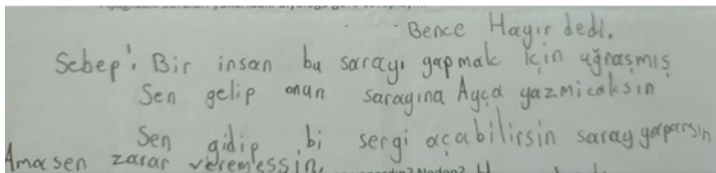 Bence Hayır dedi.
Sebep: Bir insan bu sarayı yapmak için uğraşmış
Sen gelip onun sarayına Ayça yazmicaksın
Sen gidip bi sergi açabilirsin saray yaparsın
Ama sen zarar veremessin.